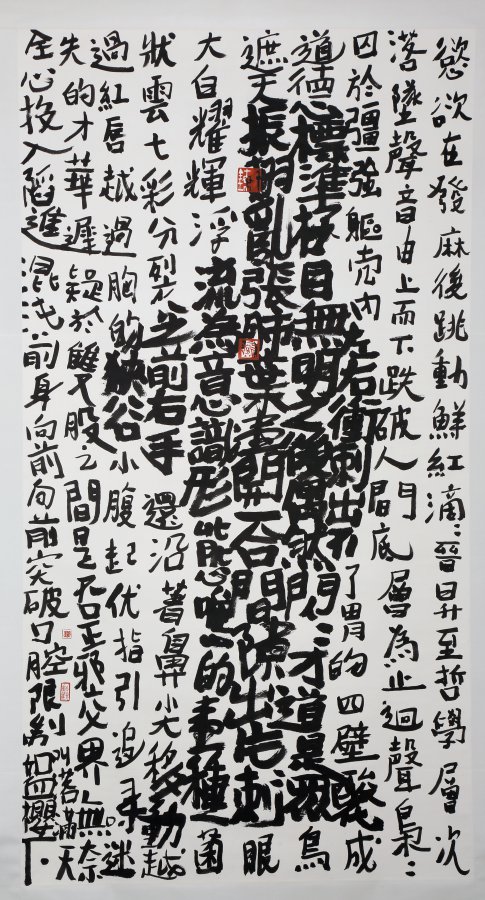 慾欲在發麻後跳動鮮紅滴:晉昇至哲學層次
落墜聲音由上而下跌破人間底層為止迴聲梟:
囚於彊強軀壳内左右衝刺出不了胃的四壁成
道德標準目無明之後偶然才道是眾鳥
遮天振翅亂張肺葉未開間隙出刺眼
大白耀輝浮流為意識形態唯一的種菌
狀雲七彩分列前右手還沿著鼻尖移動越
過紅唇越過胸的狹谷小腹起伏指引追尋迷
失的才華遲疑於雙股之間是否正邪交界無奈
全心投入混前身向前向前突破口腔限制如血櫻下
滿天